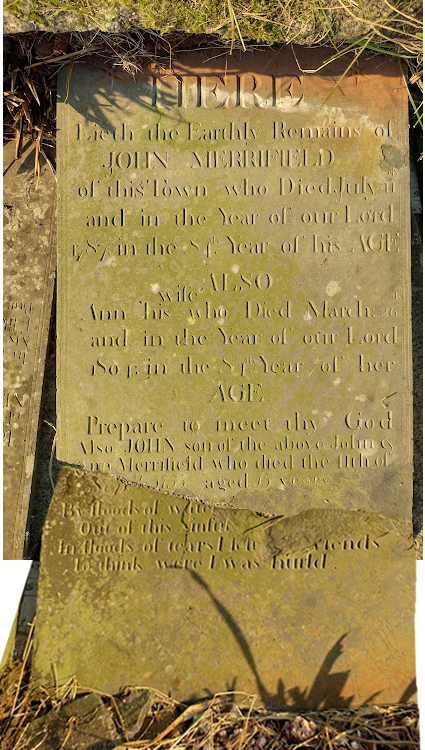 HERE
Lieth the Earthly Remains of
JOHN MERRIFIELD
of this Town who Died July 11
and in the Year of our Lord
in the 84th Year of his AGE
ALSO
wife
Ann his who Died March 26
and in the Year of our Lord
1804 in the 84th Year of her
AGE
Prepare to meet thy God
Also JOHN son of the above John &
Merrifield who died the 11th of
aged 15 years
By floods of
Out of this
In floods of tears I left friends
To think were I was hurld